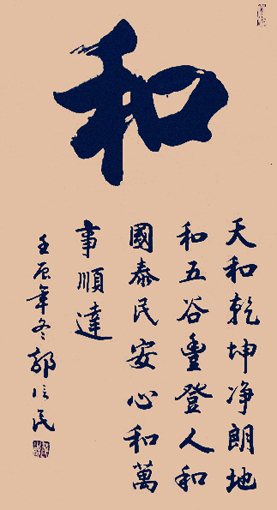 和
天和乾坤净朗地
和五谷豐登人和
國泰民安心和萬
事順達
壬辰年冬郭信民